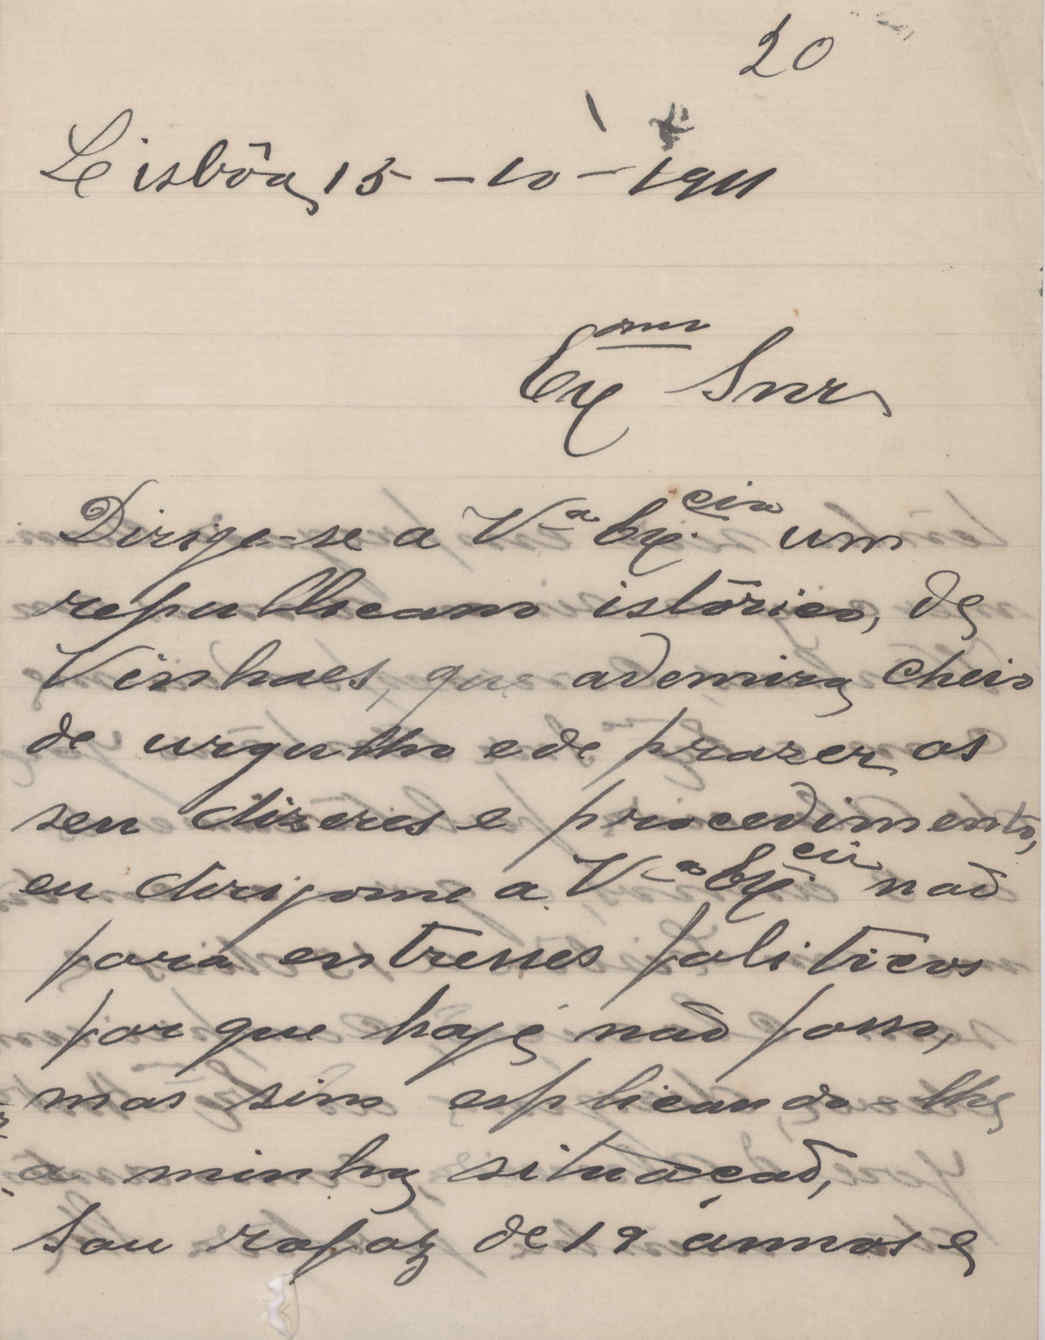 20
Lisbôa, 15-10-1911
Ex^mo Snr.
Dirige-se a V^a Ex.^cia um
republicano istórico, de
Vinhaes, que ademira cheio
de urgulho e de prazer os
seu dizeres e procedimento,
eu dirijome a V^a Ex.^cia naõ
para entresses politicos
por que haje naõ posso,
mas sim esplicando lhe
a minha situacaõ,
Sou rapaz de 19 ánnos e